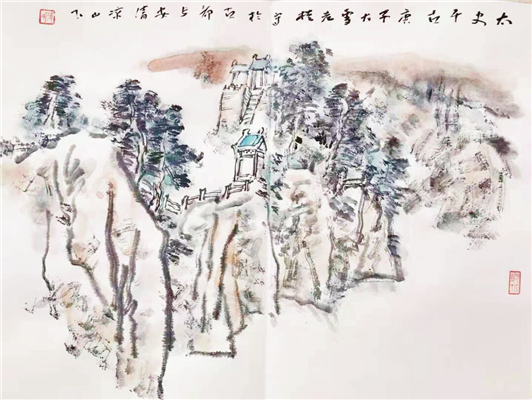 太史千古庚子大雪老桂写於古都长安清凉山下